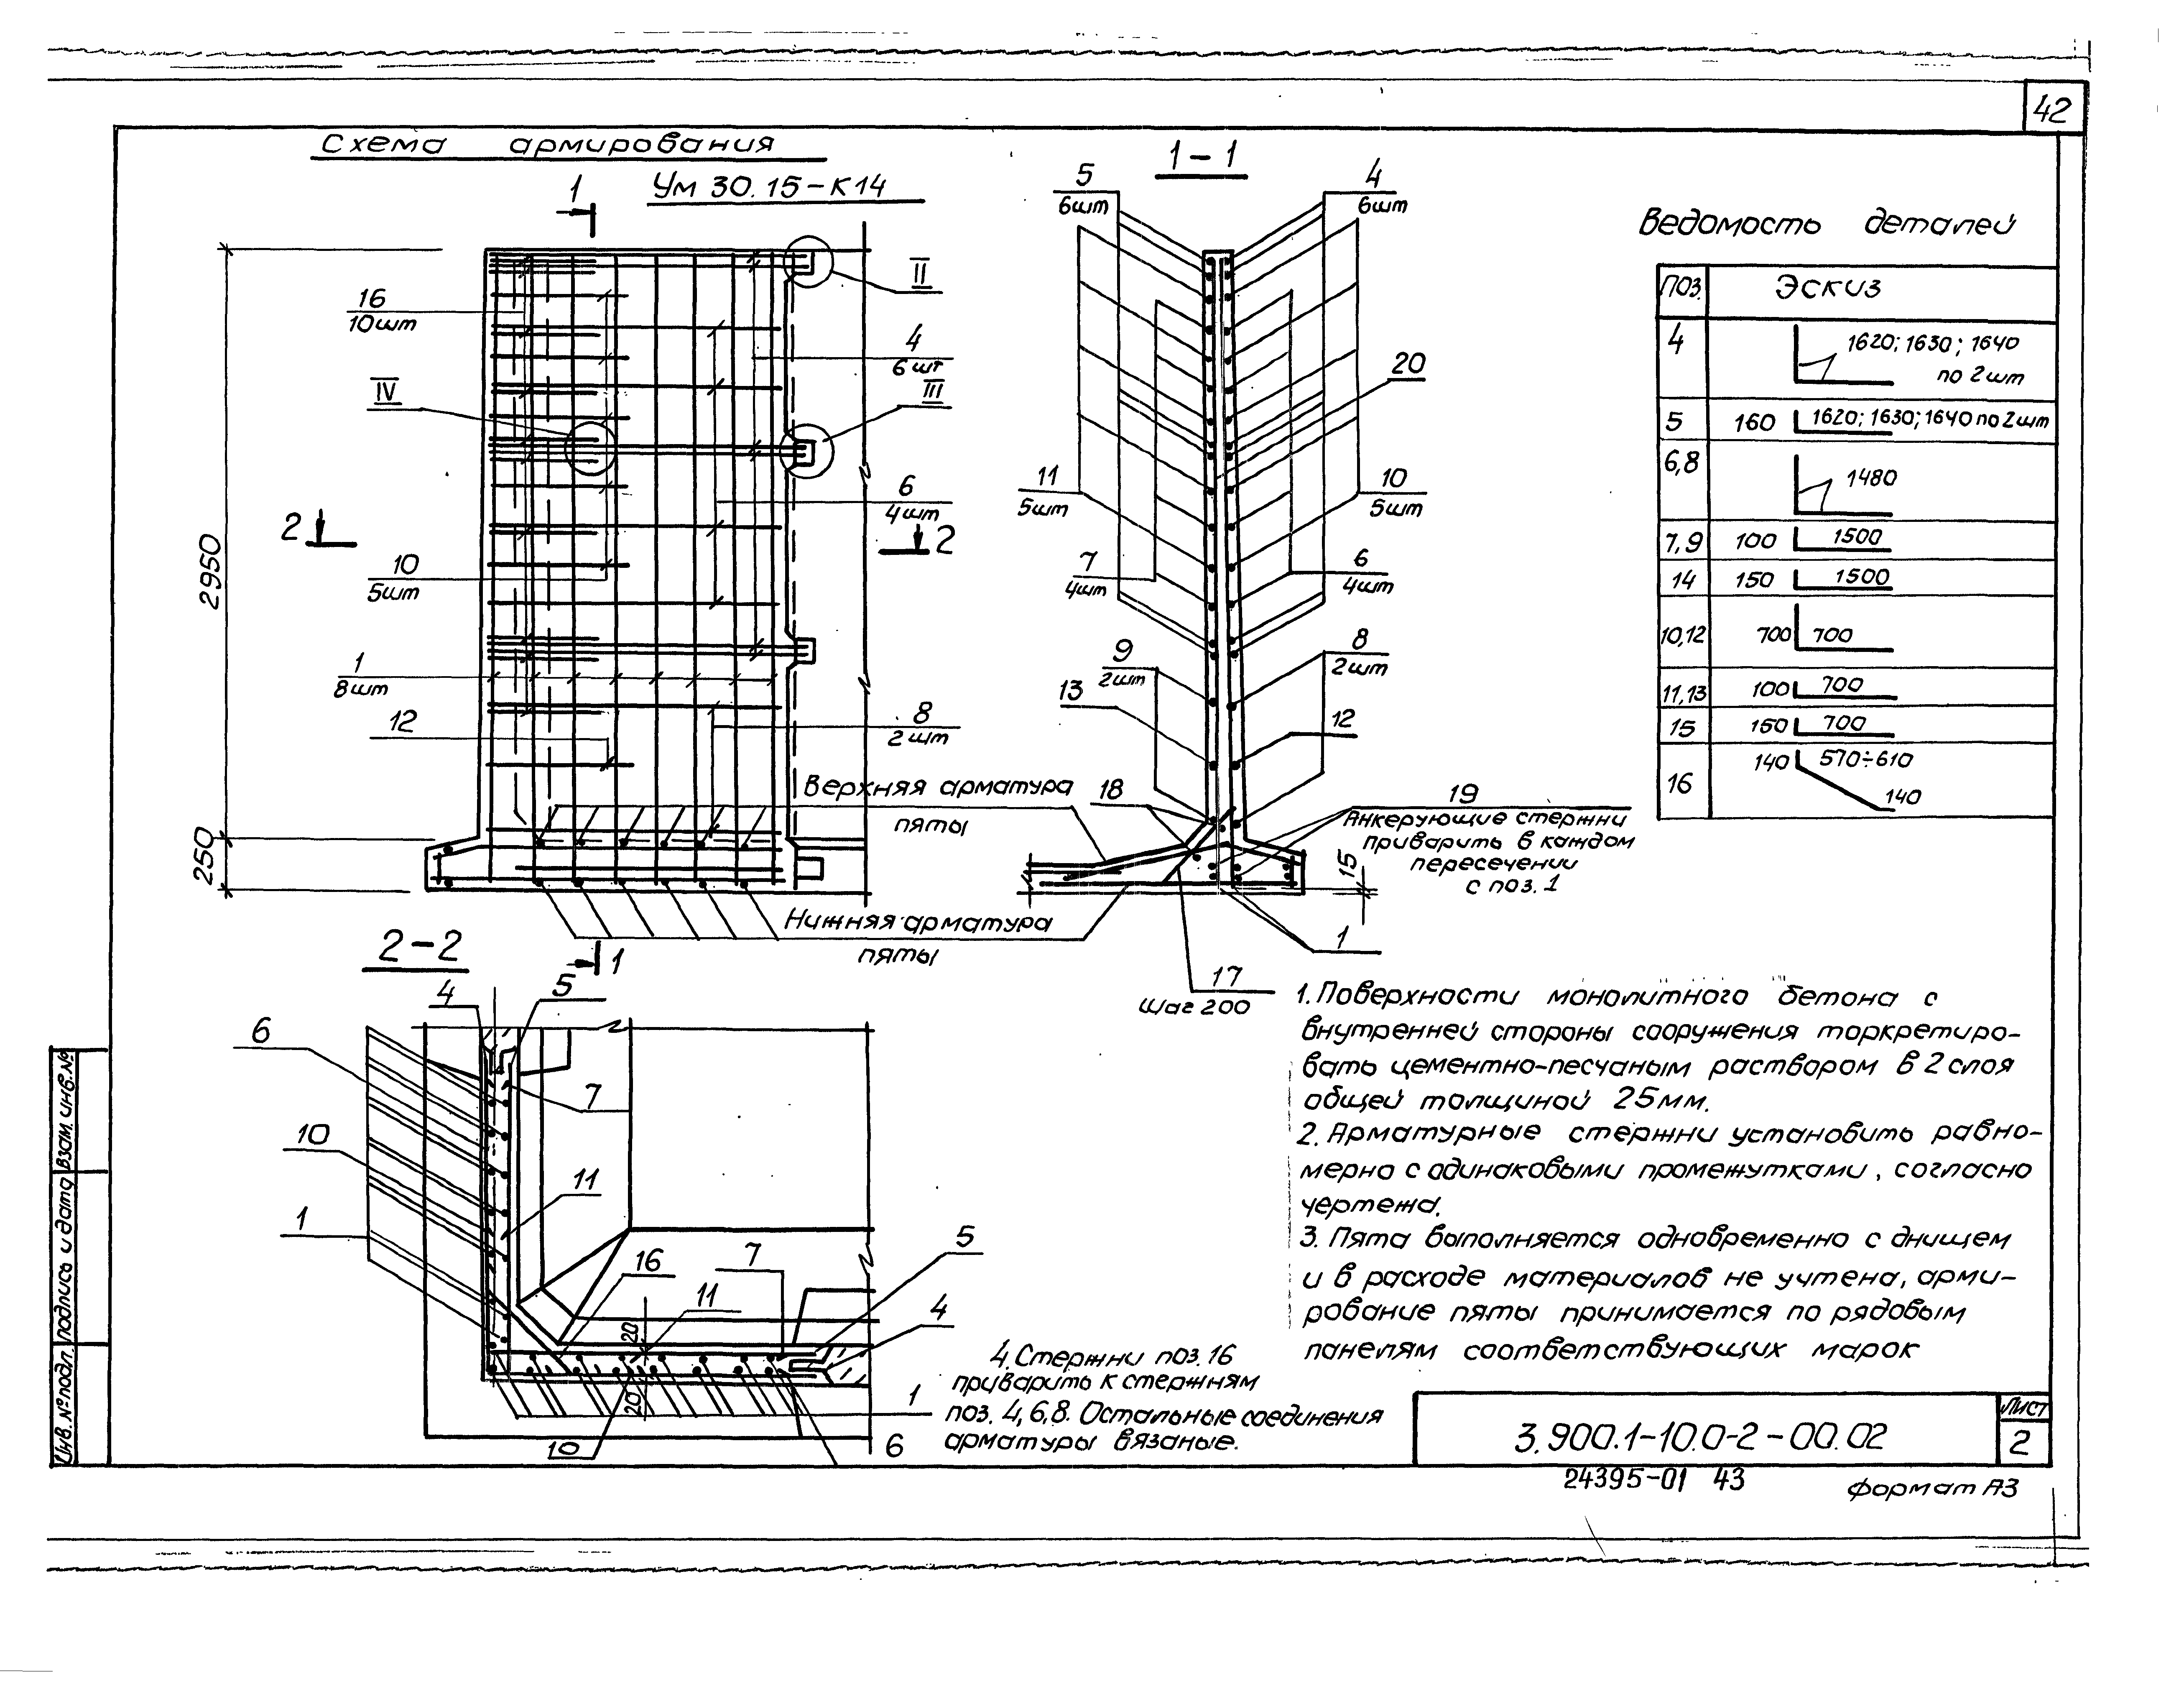 42
Схема армирования
Ум 30.15-К14
1
16
10шт
II
4
6 шт
IV
III
6
4шт
2
2
10
5шт
2950
1
8шт
12
8
2 шт
250
Верхняя арматура
пяты
Нижняя арматура
пяты
1
1-1
5
6шт
4
6шт
20
11
5шт
10
5шт
7
4шт
6
4шт
9
2шт
8
2шт
13
12
18
19
Анкерующие стержни
приварить в каждом
пересечении
с поз. 1
15
1
17
Шаг 200
Ведомость деталей
ПОЗ. Эскиз
4 1620; 1630; 1640
по 2шт
5 160 1620; 1630; 1640 по 2шт
6,8 1480
7,9 100 1500
14 150 1500
10,12 700 700
11,13 100 700
15 150 700
16 140 570÷610
140
2-2
4
5
6
7
10
11
1
16
7
11
5
4
20
20
1
10
6
1. Поверхности монолитного бетона с
внутренней стороны сооружения торкретиро-
вать цементно-песчаным раствором в 2 слоя
общей толщиной 25мм.
2. Арматурные стержни установить равно-
мерно с одинаковыми промежутками, согласно
чертежа.
3. Пята выполняется одновременно с днищем
и в расходе материалов не учтена, арми-
рование пяты принимается по рядовым
панелям соответствующих марок
4. Стержни поз. 16
приварить к стержням
поз. 4,6,8. Остальные соединения
арматуры вязаные.
3.900.1-10.0-2-00.02
Лист
2
24395-01 43
Формат А3
Инв. № подл.
Подпись и дата
Взам. инв. №